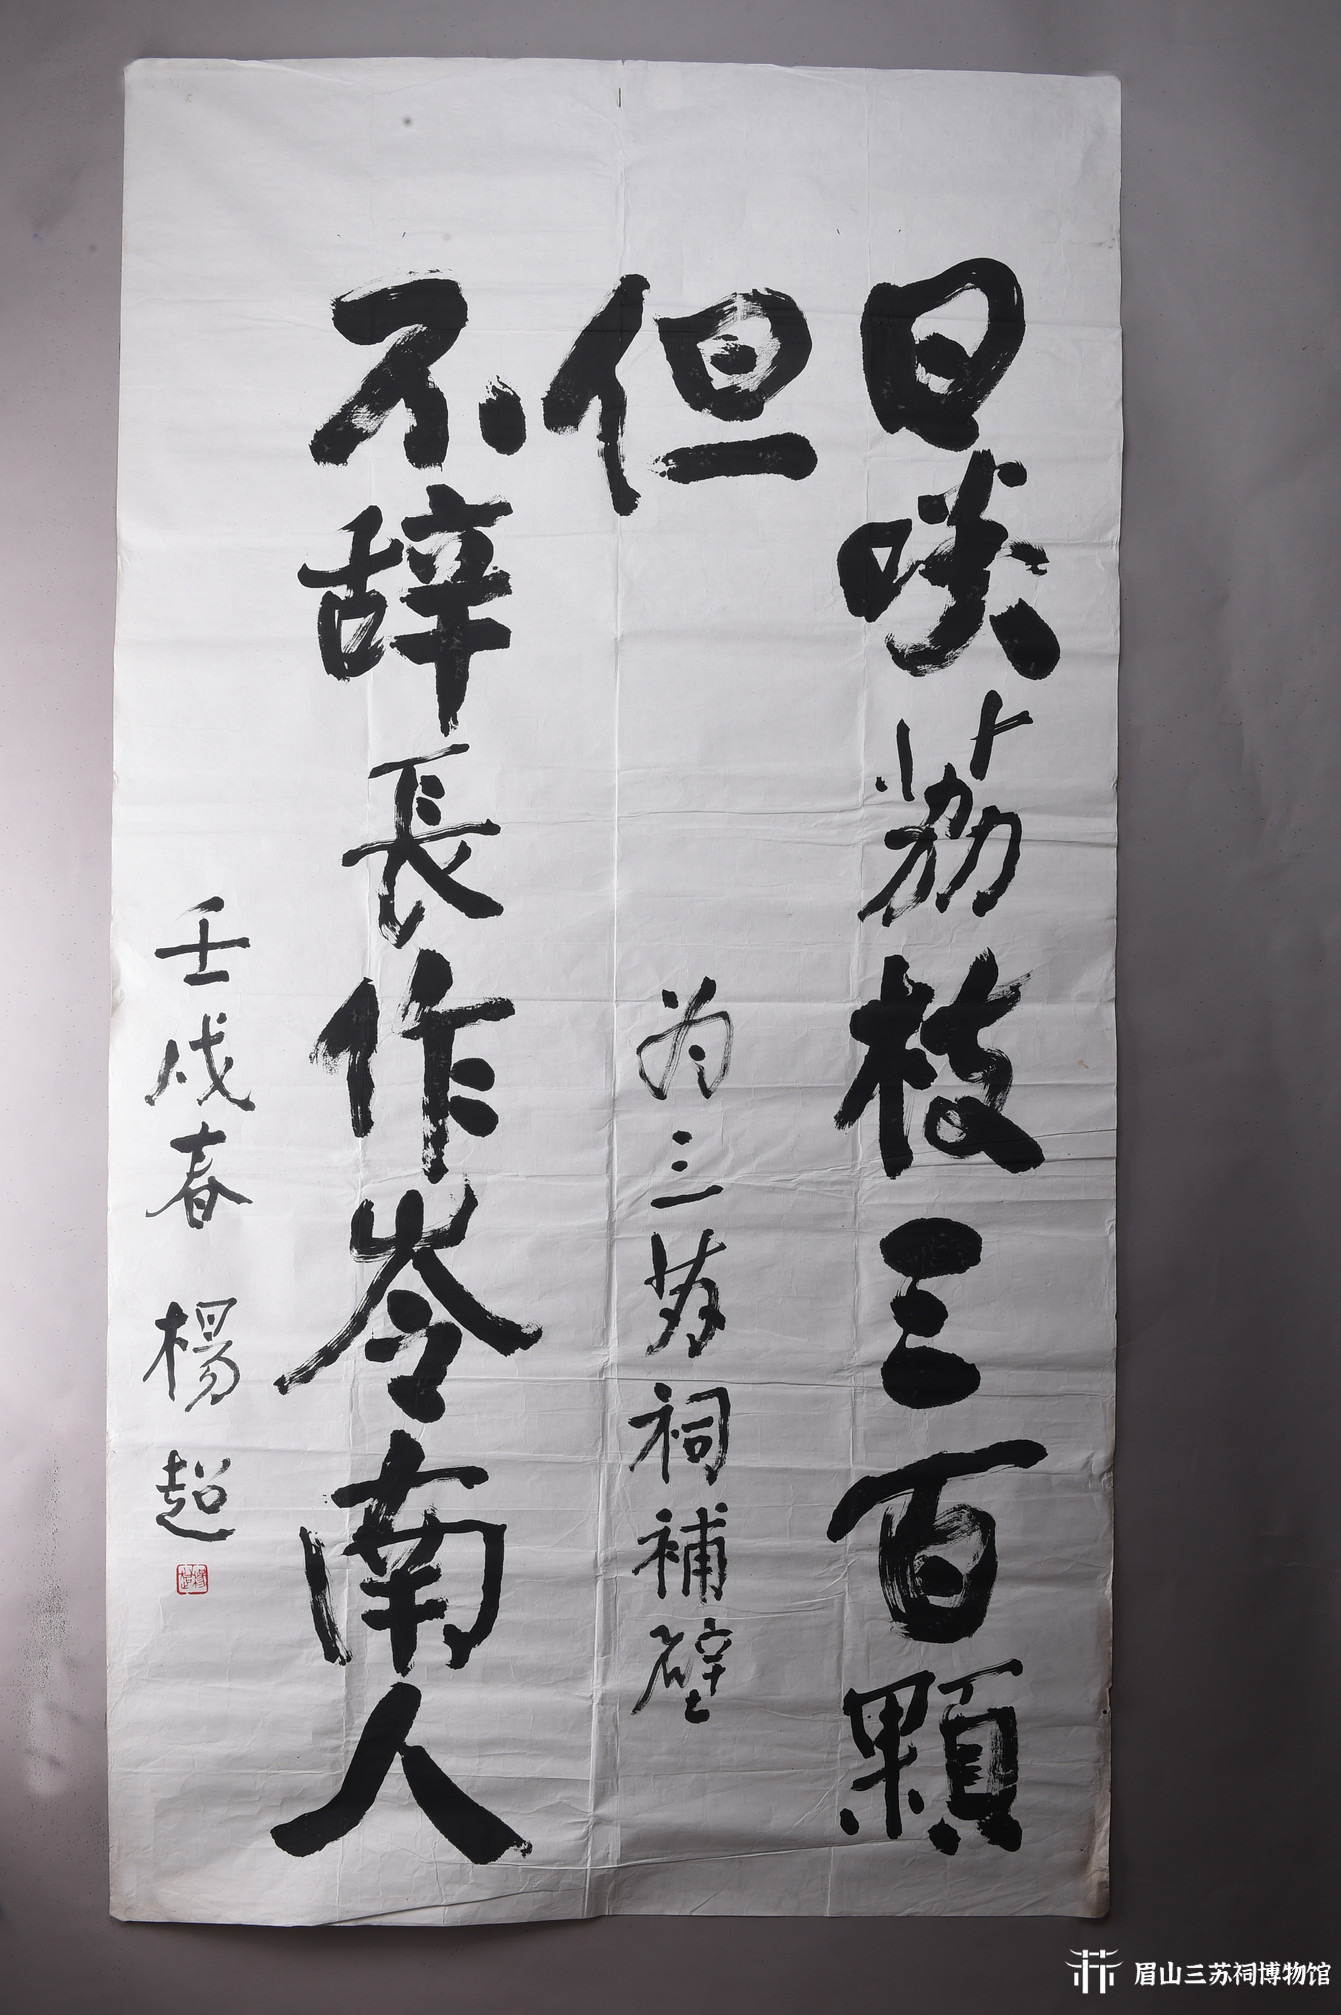 日啖荔枝三百顆
但
为三苏祠補壁
不辞長作岺南人
壬戌春 楊超
眉山三苏祠博物馆